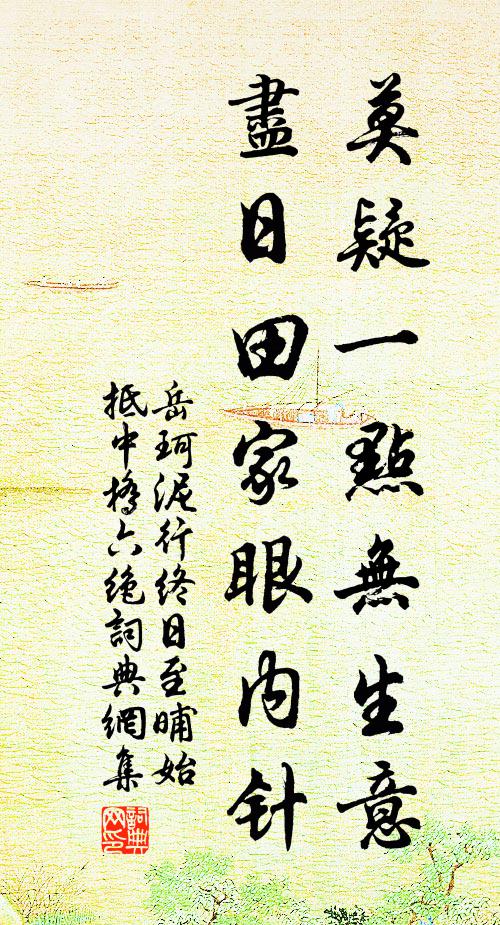 莫疑一點無生意
盡日田家眼内针
岳珂泥行終日至晡始
抵中橋六絶詞典網集
詞典网印